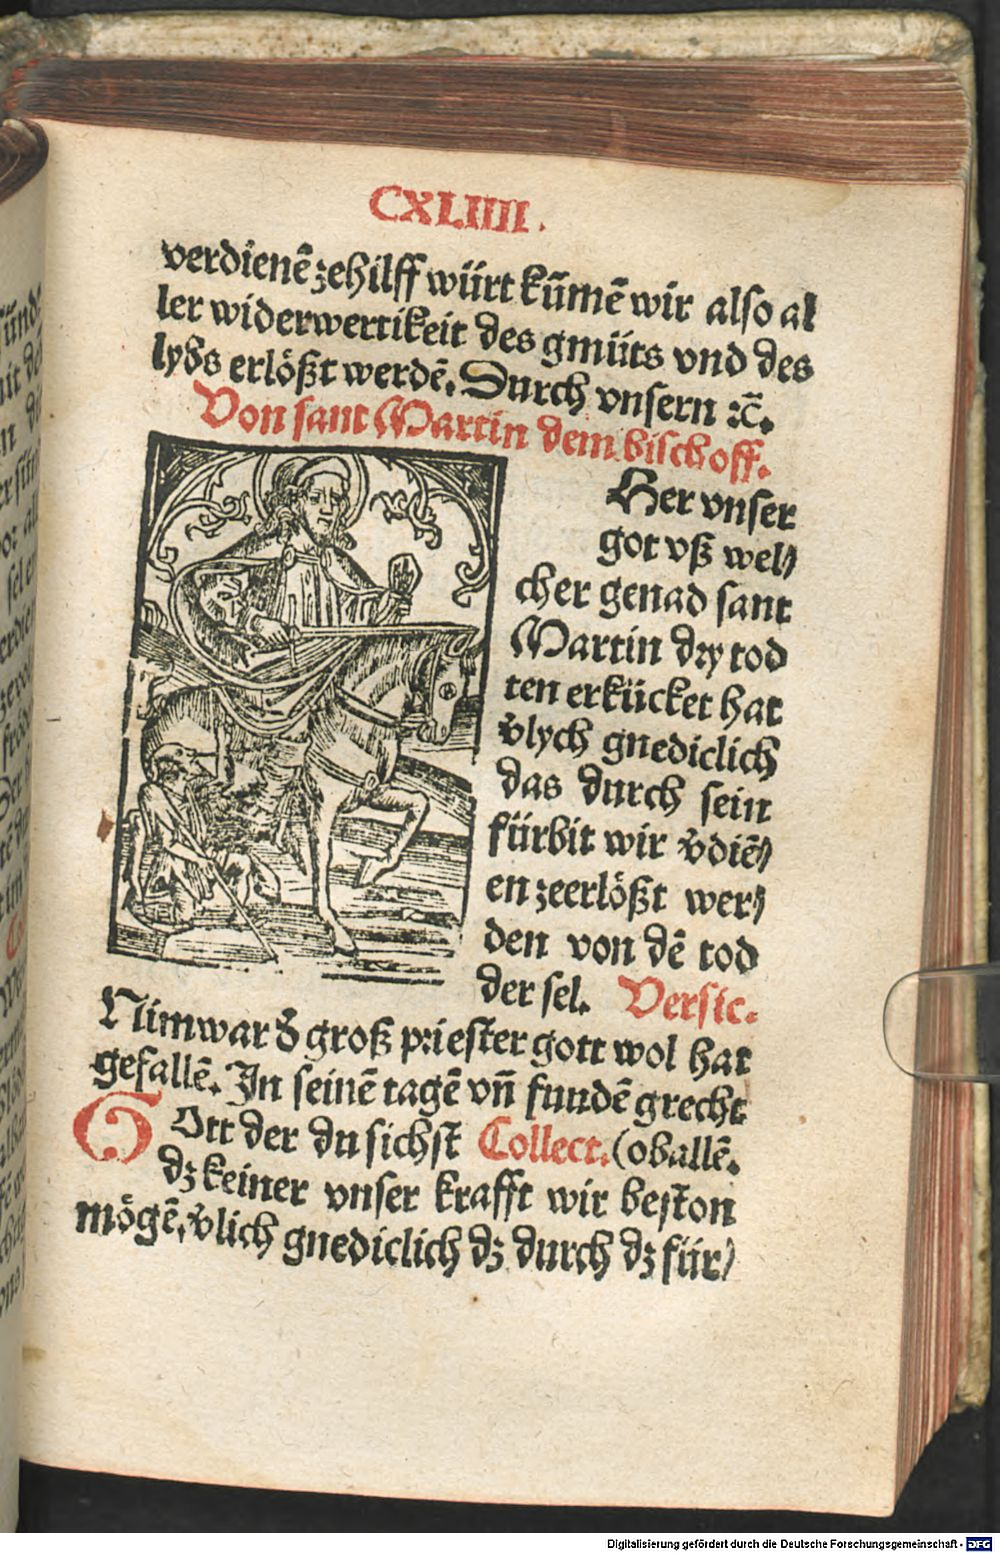 CXLIIII.
verdienē zehilff würt kūmē wir also al
ler widerwertikeit des gmüts vnd des
lybs erlößt werdē. Durch vnsern ⁊c̄.
Von sant Martin dem bischoff.
Her vnser
got vß wel⸗
cher genad sant
Martin dry tod
ten erkücket hat
v̄lych gnediclich
das durch sein
fürbit wir v̄diē⸗
en zeerlößt wer⸗
den von dē tod
der sel. Versic.
Nimwar d̄ groß priester gott wol hat
gefallē. In seinē tagē vn̄ fundē grecht
Gott der du sichst Collect. (oballē.
dz keiner vnser krafft wir beston
mögē, v̄lich gnediclich dz durch dz für⸗
Digitalisierung gefördert durch die Deutsche Forschungsgemeinschaft - DFG